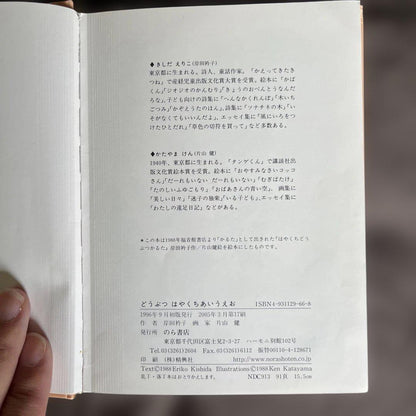 ◆きしだ えりこ(岸田衿子)
東京都に生まれる。詩人、童話作家。「かえってきたき
つね」で産経児童出版文化賞大賞を受賞。絵本に「かば
くん」「ジオジオのかんむり」「きょうのおべんとうなんだ
ろな」、子ども向けの詩集に「へんなかくれんぼ」「木いち
ごつみ」「かぞえうたのほん」、詩集に「ソナチネの木」「い
そがなくてもいいんだよ」、エッセイ集に「風にいろをつ
けたひとだれ」「草色の切符を買って」など多数ある。
◆かたやま けん(片山 健)
1940年、東京都に生まれる。「タンゲくん」で講談社出
版文化賞絵本賞を受賞。絵本に「おやすみなさいコッコ
さん」「だーれもいない だーれもいない」「むぎばたけ」
「たのしいふゆごもり」「おばあさんの青い空」、画集に
「美しい日々」「迷子の独楽」「いる子ども」、エッセイ集に
「わたしの遠足日記」などがある。
★この本は1988年福音館書店より「かるた」として出された『はやくちどう
ぶつかるた』岸田衿子作/片山健絵を絵本にしたものです。
どうぶつ はやくちあいうえお ISBN4-931129-66-8
1996年9月初版発行 2005年3月第17刷
作者 岸田衿子 画家 片山 健
発行所 のら書店
東京都千代田区富士見2-3-27 ハーモニ別館102号
電話03(3261)2604 Fax03(3261)6112 振替00110-4-128671
印刷 (株)精興社 http://www.norashoten.co.jp
Text©1988 Eriko Kishida Illustrations©1988 Ken Katayama
乱丁・落丁本はお取りかえいたします。 NDC913 91頁 15.5cm